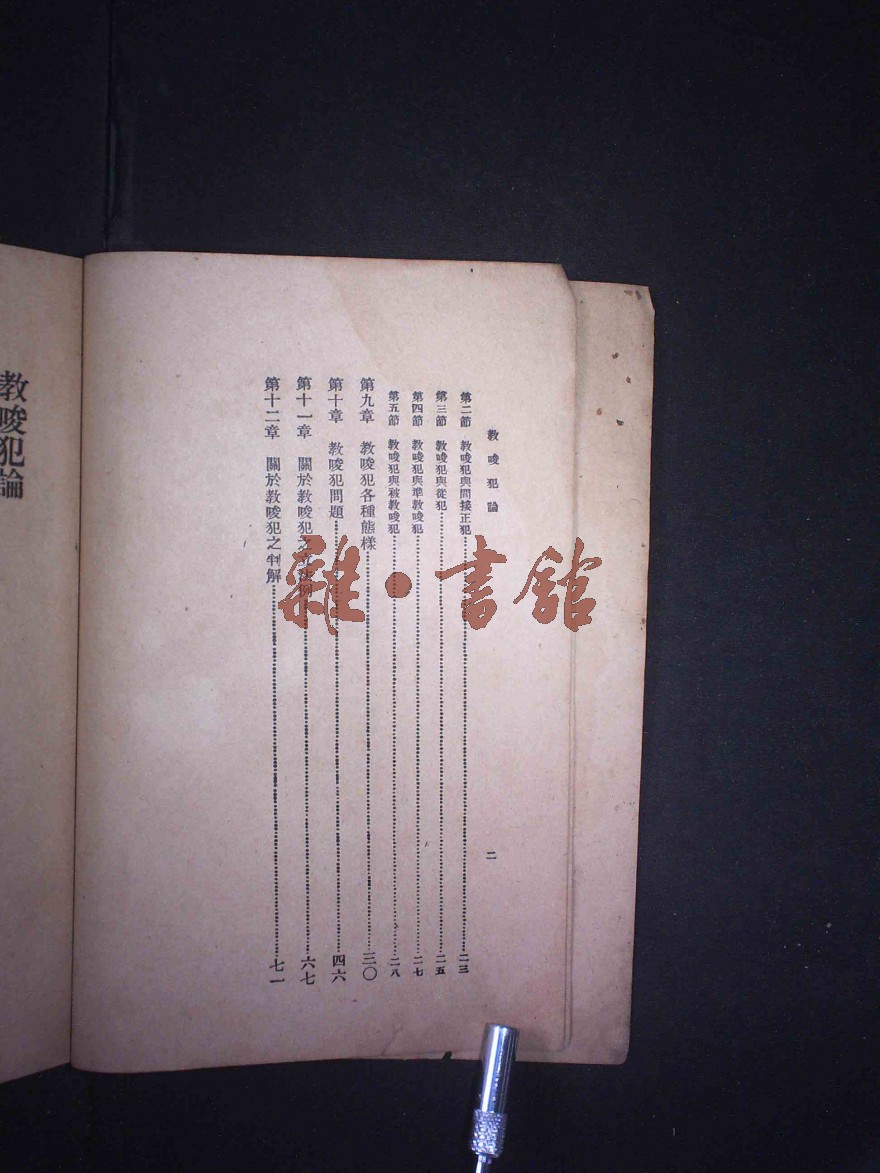 教唆犯論
二
第二節 教唆犯與間接正犯……二三
第三節 教唆犯與從犯……二五
第四節 教唆犯與準教唆犯……二七
第五節 教唆犯與被教唆犯……二八
第九章 教唆犯各種態樣……三〇
第十章 教唆犯問題……四六
第十一章 關於教唆犯之立法例……六七
第十二章 關於教唆犯之判解……七一
教唆犯論
雜·書館